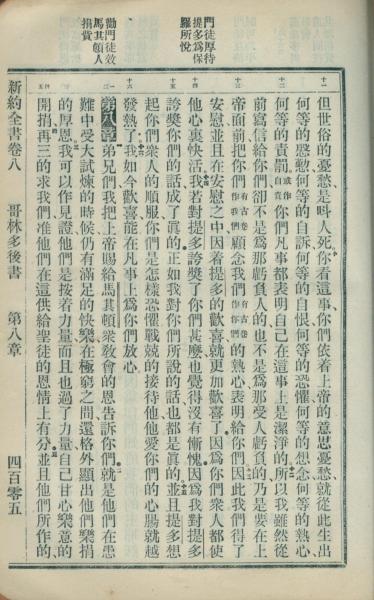 門徒厚待
提多爲保
羅所悅
勸門徒效
馬其頓人
捐貲
十一
十二
十三
十四
十五
十六
一二
三
四五
但世俗的憂愁是呌人死你看這事你們依着上帝的意思憂愁就從此生出
何等的慇懃何等的自訴何等的自恨何等的恐懼何等的想念何等的熱心
何等的責罰或作自責你們凡事都表明自己在這事上是潔淨的所以我雖然從
前寫信給你們卻不是爲那虧負人的也不是爲那受人虧負的乃是要在上
帝面前把你們有古卷作我們顧念我們有古卷作你們的熱心表明給你們因此我們得了
安慰並且在安慰之中因着提多的歡喜就更加歡喜了因爲你們衆人都使
他心裏快活我若對提多誇獎了你們甚麽也覺得沒有慚愧因爲我對提多
誇獎你們的話成了眞的正如我對你們所說的話也都是眞的並且提多想
起你們衆人的順服你們是怎樣恐懼戰兢的接待他他愛你們的心腸就越
發熱了我如今歡喜能在凡事上爲你們放心
第八章弟兄們我把上帝賜給馬其頓衆敎會的恩告訴你們就是他們在患
難中受大試煉的時候仍有滿足的快樂在極窮之間還格外顯出他們樂捐
的厚恩我可以作見證他們是按着力量而且也過了力量自己甘心樂意的
開捐再三的求我們准他們在這供給聖徒的恩情上有分並且他們所作的
新約全書卷八 哥林多後書 第八章 四百零五